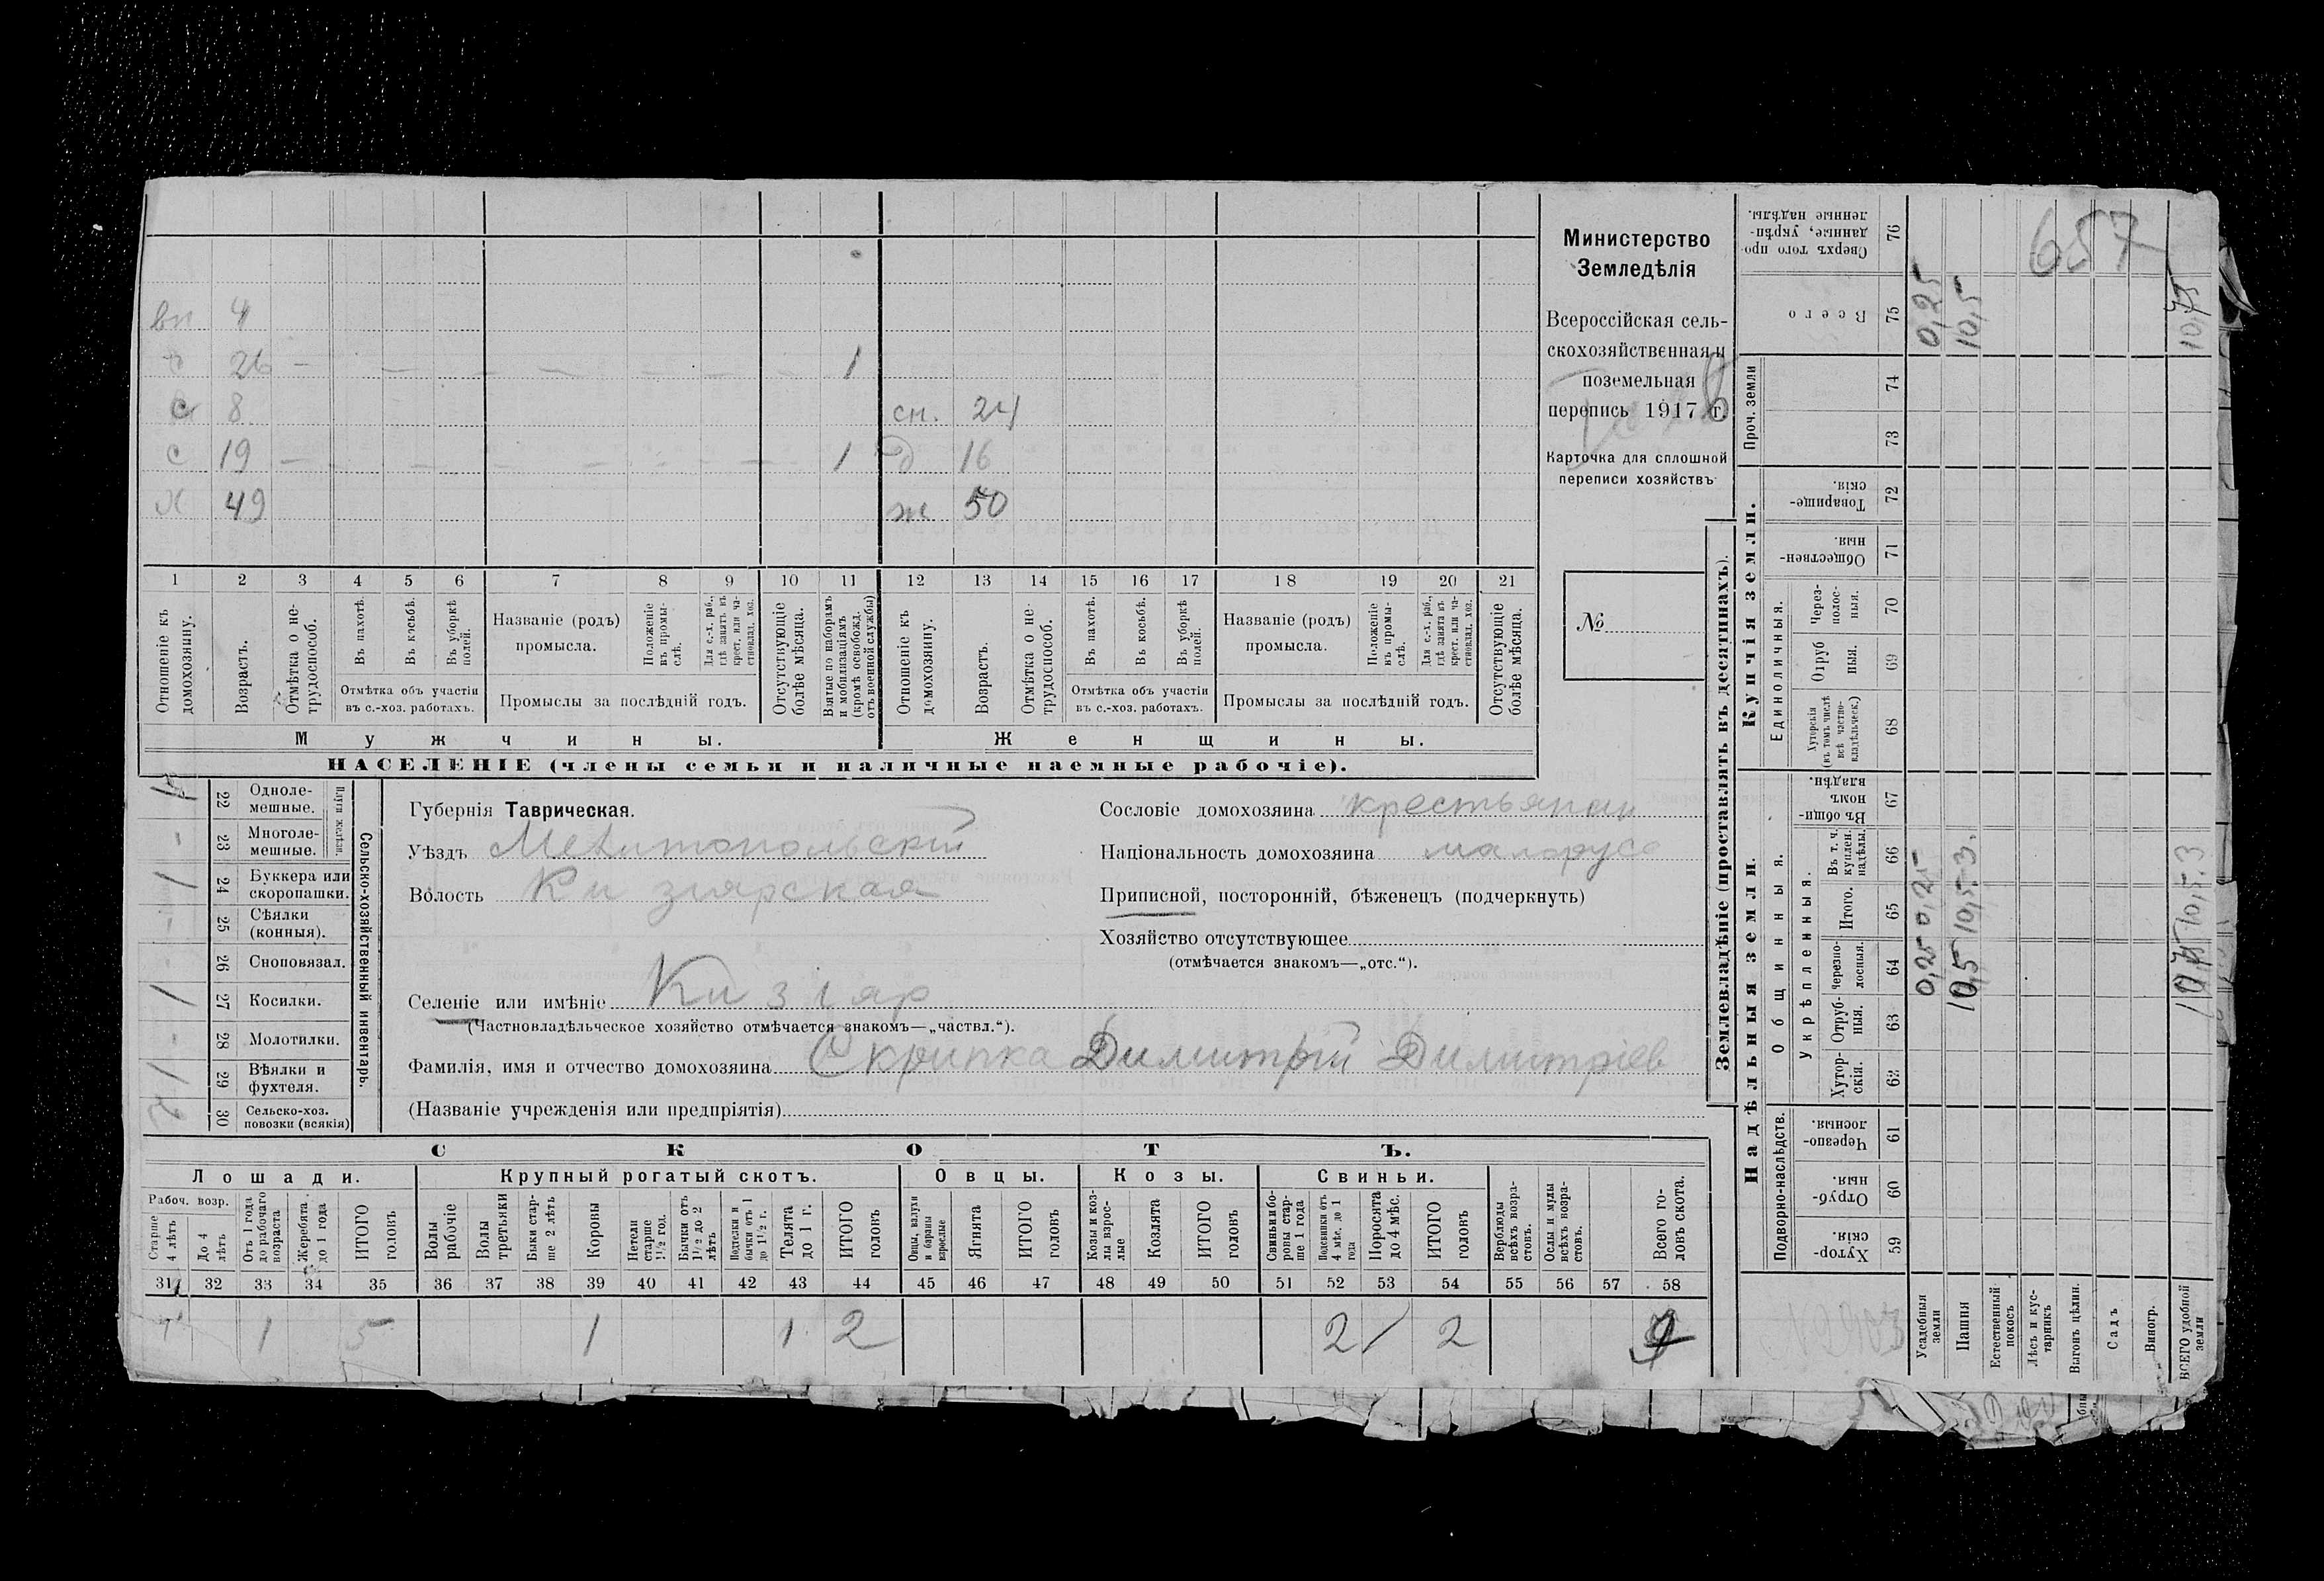 вн 4
26 — — — — — — — 1
с 8 сн. 24
с 19 — — — — — — — 1 д 16
х 49 ж 50
1 2 3 4 5 6 7 8 9 10 11 12 13 14 15 16 17 18 19 20 21
Отношеніе къ домохозяину.
Возрастъ.
Отмѣтка о не-трудоспособ.
Въ пахотѣ.
Въ косьбѣ.
Въ уборкѣ полей.
Отмѣтка объ участіи
въ с.-хоз. работахъ.
Названіе (родъ)
промысла.
Положеніе въ промы-слѣ.
Для с.-х. раб., гдѣ занятъ въ крест. или ча-стновлад. хоз.
Промыслы за послѣдній годъ.
Отсутствующіе болѣе мѣсяца.
Взятые по наборамъ и мобилизаціямъ (кромѣ освобожд. отъ военной службы)
Отношеніе къ домохозяину.
Возрастъ.
Отмѣтка о не-трудоспособ.
Въ пахотѣ.
Въ косьбѣ.
Въ уборкѣ полей.
Отмѣтка объ участіи
въ с.-хоз. работахъ.
Названіе (родъ)
промысла.
Положеніе въ промы-слѣ.
Для с.-х. раб., гдѣ занята въ крест. или ча-стновлад. хоз.
Промыслы за послѣдній годъ.
Отсутствующіе болѣе мѣсяца.
Мужчины. Женщины.
НАСЕЛЕНІЕ (члены семьи и наличные наемные рабочіе).
Министерство
Земледѣлія
Всероссійская сель-
скохозяйственная и
поземельная
перепись 1917 г.
Карточка для сплошной
переписи хозяйствъ
№
Сельско-хозяйственный инвентарь.
Плуги желѣзн.
22 Одноле-мешные.
- 23 Многоле-мешные.
1 24 Буккера или скоропашки.
- 25 Сѣялки (конныя).
- 26 Сноповязал.
1 27 Косилки.
- 28 Молотилки.
1 29 Вѣялки и фухтеля.
30 Сельско-хоз. повозки (всякія)
Губернія Таврическая.
Уѣздъ Мелитопольскій
Волость Кизіярская
Селеніе или имѣніе Кизіяр
(Частновладѣльческое хозяйство отмѣчается знакомъ—„частвл.“).
Фамилія, имя и отчество домохозяина Скрипка Димитрій Димитріев
(Названіе учрежденія или предпріятія)
Сословіе домохозяина крестьянин
Національность домохозяина малорусс
Приписной, посторонній, бѣженецъ (подчеркнуть)
Хозяйство отсутствующее
(отмѣчается знакомъ—„отс.“).
СКОТЪ.
Лошади. Крупный рогатый скотъ. Овцы. Козы. Свиньи.
Рабоч. возр.
Старше 4 лѣтъ
До 4 лѣтъ
Отъ 1 года до рабочаго возраста
Жеребята до 1 года
ИТОГО головъ
Волы рабочіе
Волы третьяки
Быки стар-ше 2 лѣтъ
Коровы
Нетели старше 1½ год.
Бычки отъ 1½ до 2 лѣтъ
Подтелки и бычки отъ 1 до 1½ г.
Телята до 1 г.
ИТОГО головъ
Овцы, валухи и бараны взрослые
Ягнята
ИТОГО головъ
Козы и коз-лы взрос-лые
Козлята
ИТОГО головъ
Свиньи и бо-ровы стар-ше 1 года
Подсвинки отъ 4 мѣс. до 1 года
Поросята до 4 мѣс.
ИТОГО головъ
Верблюды всѣхъ возра-стовъ.
Ослы и мулы всѣхъ возра-стовъ.
Всего го-ловъ скота.
31 32 33 34 35 36 37 38 39 40 41 42 43 44 45 46 47 48 49 50 51 52 53 54 55 56 57 58
1 5 1 1 2 2 2 9
Землевладѣніе (проставлять въ десятинахъ).
Надѣльныя земли.
Купчія земли.
Проч. земли
Подворно-наслѣдств.
Общинныя.
Укрѣпленныя.
Единоличныя.
Хутор-скія. 59
Отруб-ныя. 60
Черезпо-лосныя. 61
Хутор-скія. 62
Отруб-ныя. 63
Черезпо-лосныя. 64
Итого. 65
Въ т. ч. куплен. надѣлы. 66
Въ общин-номъ владѣн. 67
Хуторскія (въ томъ числѣ всѣ частно-владѣльческ.) 68
Отруб ныя. 69
Через-полос-ныя. 70
Обществен-ныя. 71
Товарище-скія. 72
73
74
Всего 75
Сверхъ того про-данные, укрѣп-ленные надѣлы. 76
Усадебныя земли 0,25 0,25 0,25
Пашня 10,5 10,5 3. 10,5
Естественный покосъ
Лѣсъ и кус-тарникъ
Выгонъ цѣлин.
Садъ
Виногр.
ВСЕГО удобной земли 10,75 10,5.3 10,75
657